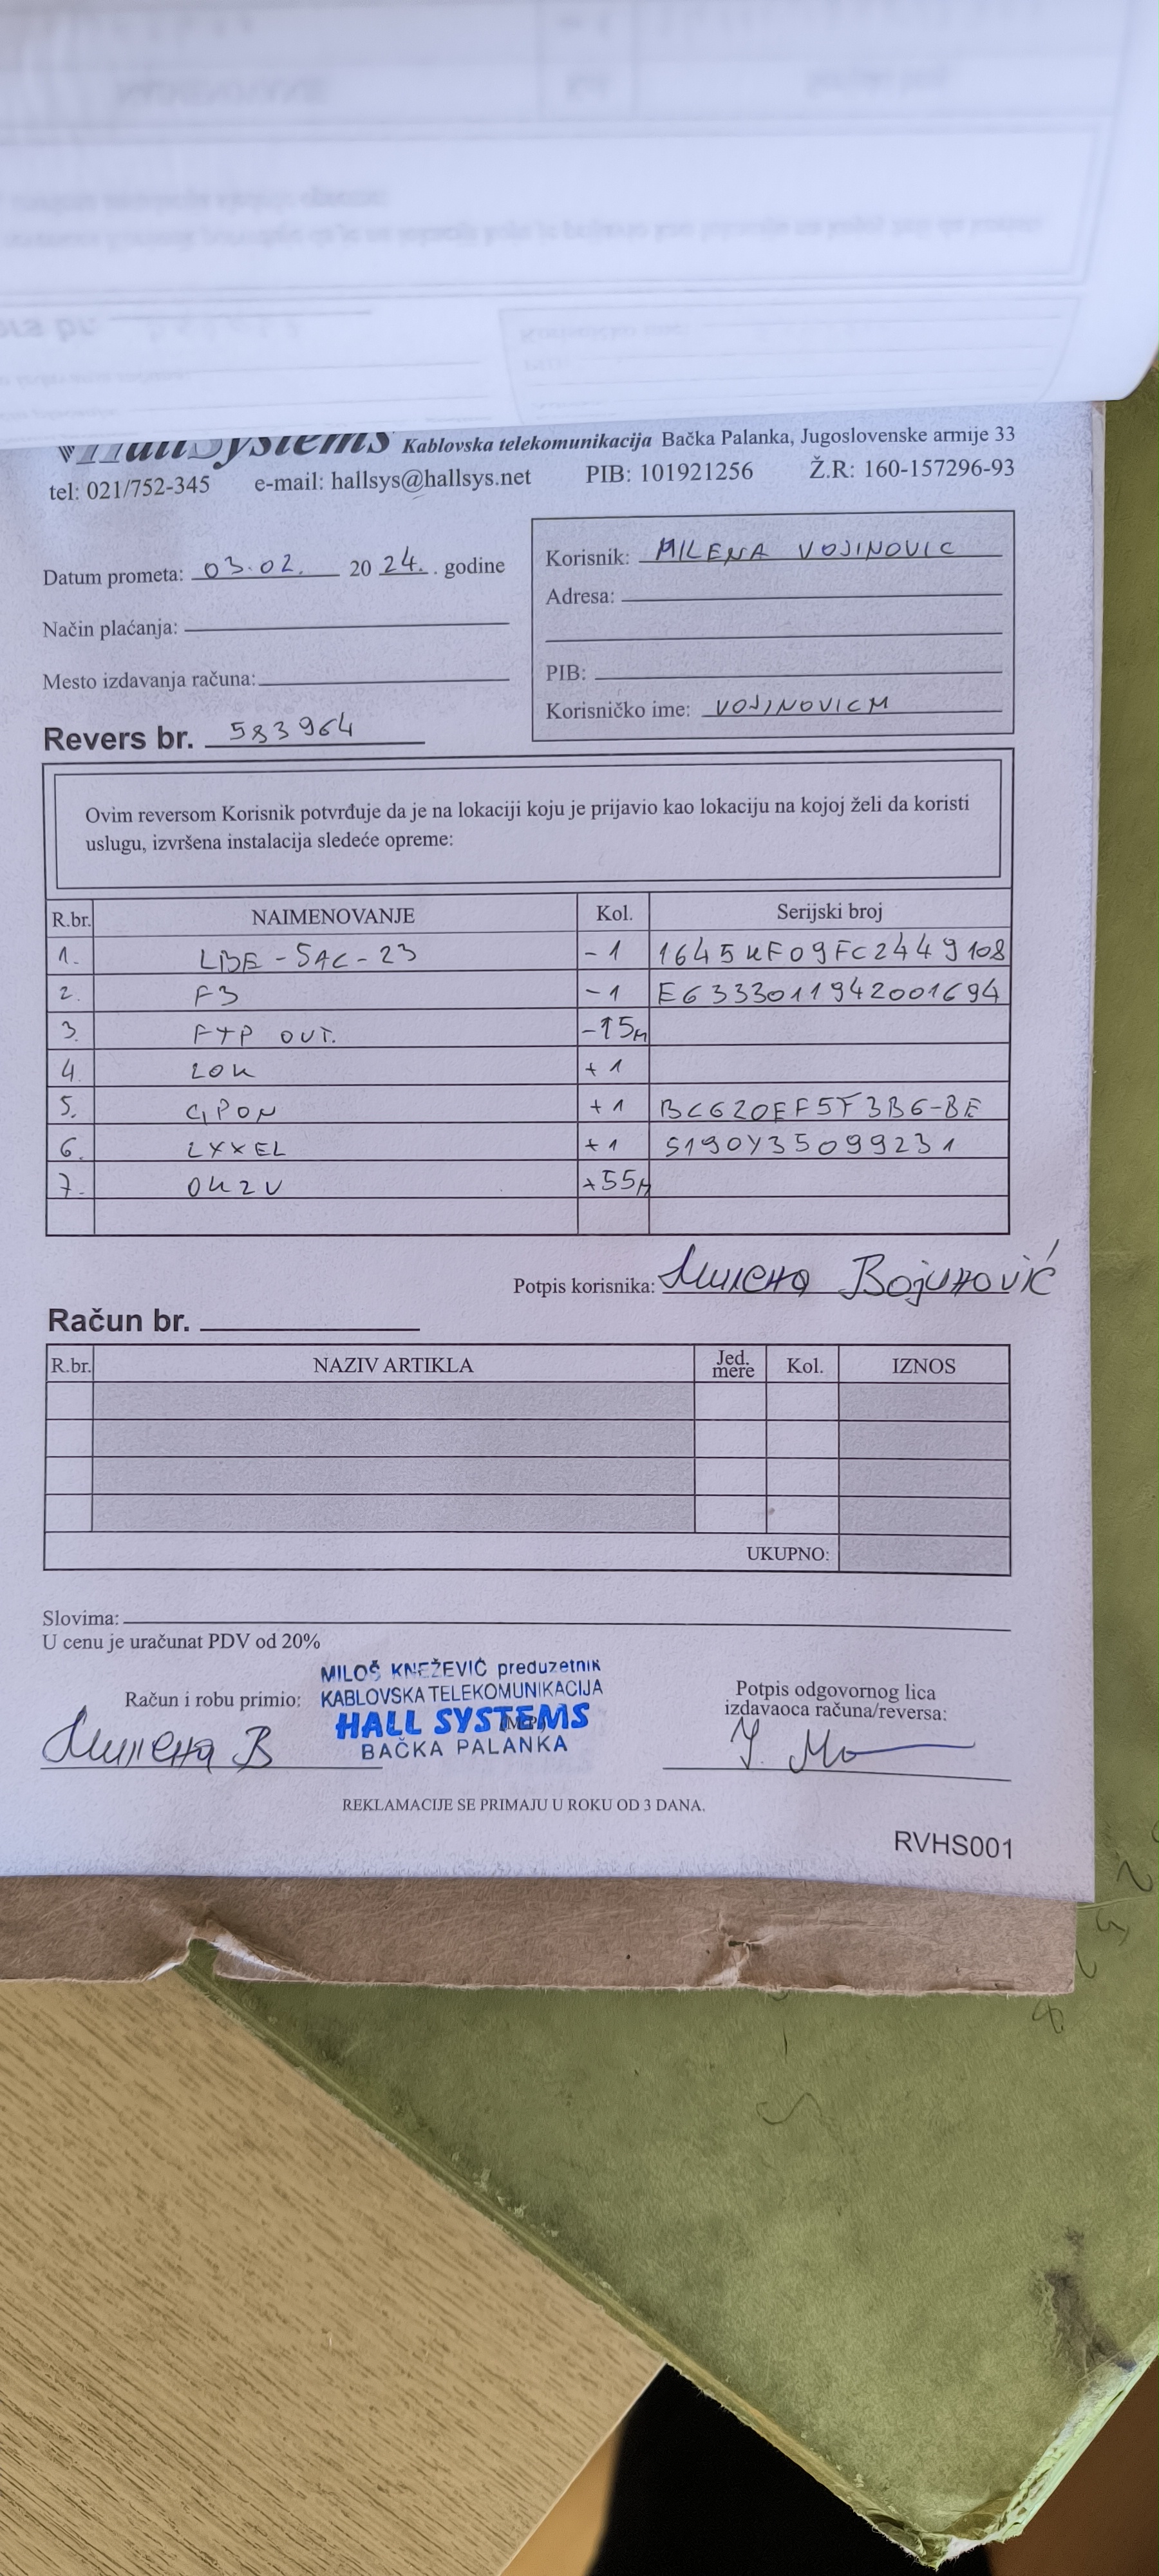 HallSystems Kablovska telekomunikacija Bačka Palanka, Jugoslovenske armije 33
tel: 021/752-345 e-mail: hallsys@hallsys.net PIB: 101921256 Ž.R: 160-157296-93
Datum prometa: 03.02. 20 24. . godine
Način plaćanja:
Mesto izdavanja računa:
Korisnik: MILENA VOJINOVIC
Adresa:
PIB:
Korisničko ime: VOJINOVICM
Revers br. 583964
Ovim reversom Korisnik potvrđuje da je na lokaciji koju je prijavio kao lokaciju na kojoj želi da koristi
uslugu, izvršena instalacija sledeće opreme:
R.br. NAIMENOVANJE Kol. Serijski broj
1. LBE-5AC-23 -1 1645KF09FC2449108
2. F3 -1 E6333011942001694
3. FTP OUT. -15m
4. ZOK +1
5. GPON +1 BC620EF5F3B6-BE
6. ZYXEL +1 S190Y35099231
7. OK2V +55m
Potpis korisnika: Милена Војиновић
Račun br.
R.br. NAZIV ARTIKLA Jed. mere Kol. IZNOS
UKUPNO:
Slovima:
U cenu je uračunat PDV od 20%
MILOŠ KNEŽEVIĆ preduzetnik
KABLOVSKA TELEKOMUNIKACIJA
HALL SYSTEMS
BAČKA PALANKA
Račun i robu primio:
Милена В
(M.P.)
Potpis odgovornog lica
izdavaoca računa/reversa:
REKLAMACIJE SE PRIMAJU U ROKU OD 3 DANA.
RVHS001